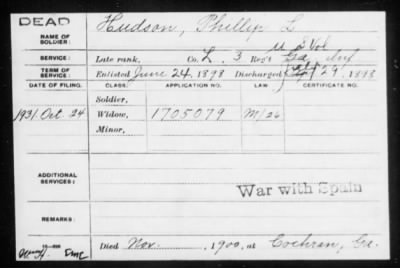 DEAD
NAME OF SOLDIER: Hudson, Phillip L
U S Vol
SERVICE: Late rank, Co. L. 3 Reg't Ga Inf
TERM OF SERVICE: Enlisted June 24, 1898 Discharged 29, 1898
DATE OF FILING. CLASS. APPLICATION NO. LAW. CERTIFICATE NO.
Soldier,
1931. Oct. 24 Widow, 1705079 M/26
Minor,
ADDITIONAL SERVICES:
War with Spain
REMARKS:
Died Nov. , 1900, at Cochran, Ga.